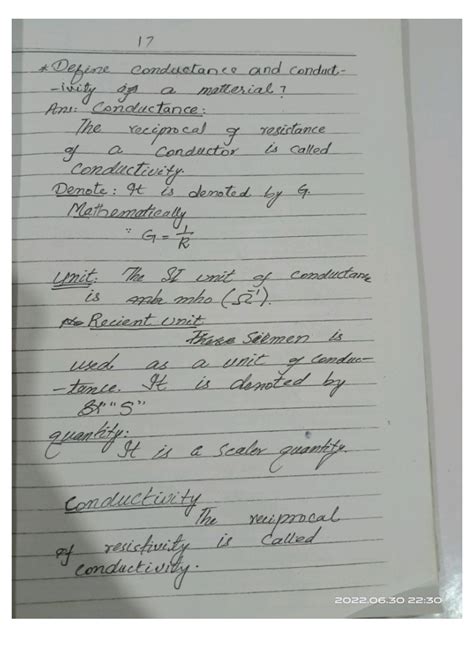 17
* Define conductance and conduct-
-ivity of a matterial?
Ans: Conductance:
The reciprocal of resistance
of a conductor is called
conductivity.
Denote: It is denoted by G.
Mathematically
∵ G = 1/R
Unit: The SI unit of conductance
is mho (Ω⁻¹).
Recient Unit
Siemen is
used as a unit of conduc-
-tance. It is denoted by
"S"
quantity:
It is a scaler quantity.
Conductivity
The reciprocal
of resistivity is called
conductivity.
2022.06.30 22:30